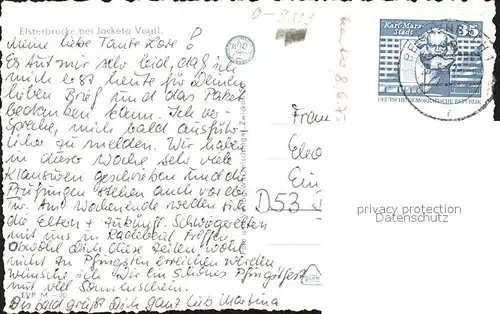 Elsterbrücke bei Jocketa Vogtl.
Meine liebe Tante Lore!
Es tut mir sehr leid, daß ich
mich erst heute für Deinen
lieben Brief und das Paket
bedanken kann. Ich ver-
spreche, mich bald ausführ-
licher zu melden. Wir haben
in dieser Woche sehr viele
Klausuren geschrieben und die
Prüfungen stehen auch vor der
Tür. Am Wochenende wollen sich
die Eltern + zukünft. Schwiegereltern
mit uns in Radebeul treffen.
Obwohl Dich diese Zeilen wohl
nicht zu Pfingsten erreichen werden
wünsche ich Dir ein schönes Pfingstfest
mit viel Sonnenschein.
Bis bald grüßt Dich ganz lieb Martina
EVP M -,20
Karl-Marx-
Stadt
35
DEUTSCHE DEMOKRATISCHE REPUBLIK
Frau
D53
privacy protection